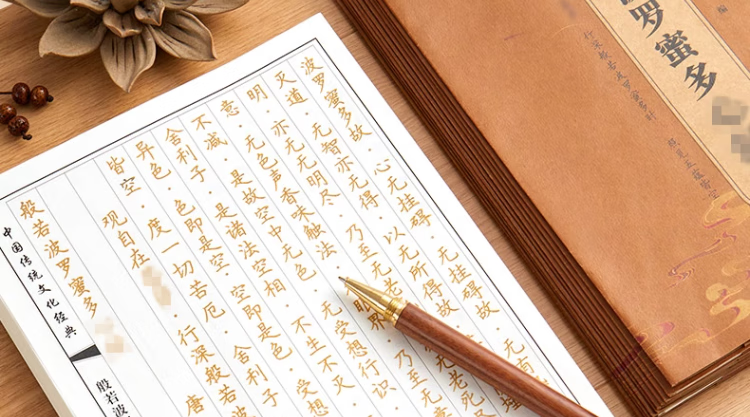 中国传统文化经典
般若波
般若波罗蜜多
唐
观自在
行深般若波
皆空.度一切苦厄.舍利子
异色.色即是空.空即是色.受想
舍利子.是诸法空相.不生不灭
不减.是故空中无色.无受想行识
意.无色声香味触法
明.亦无无明尽.乃至无老死
灭道.无智亦无得.以无所得故
波罗蜜多故.心无挂碍.无挂碍故.无有
罗蜜多
编
行深般若波罗蜜多时